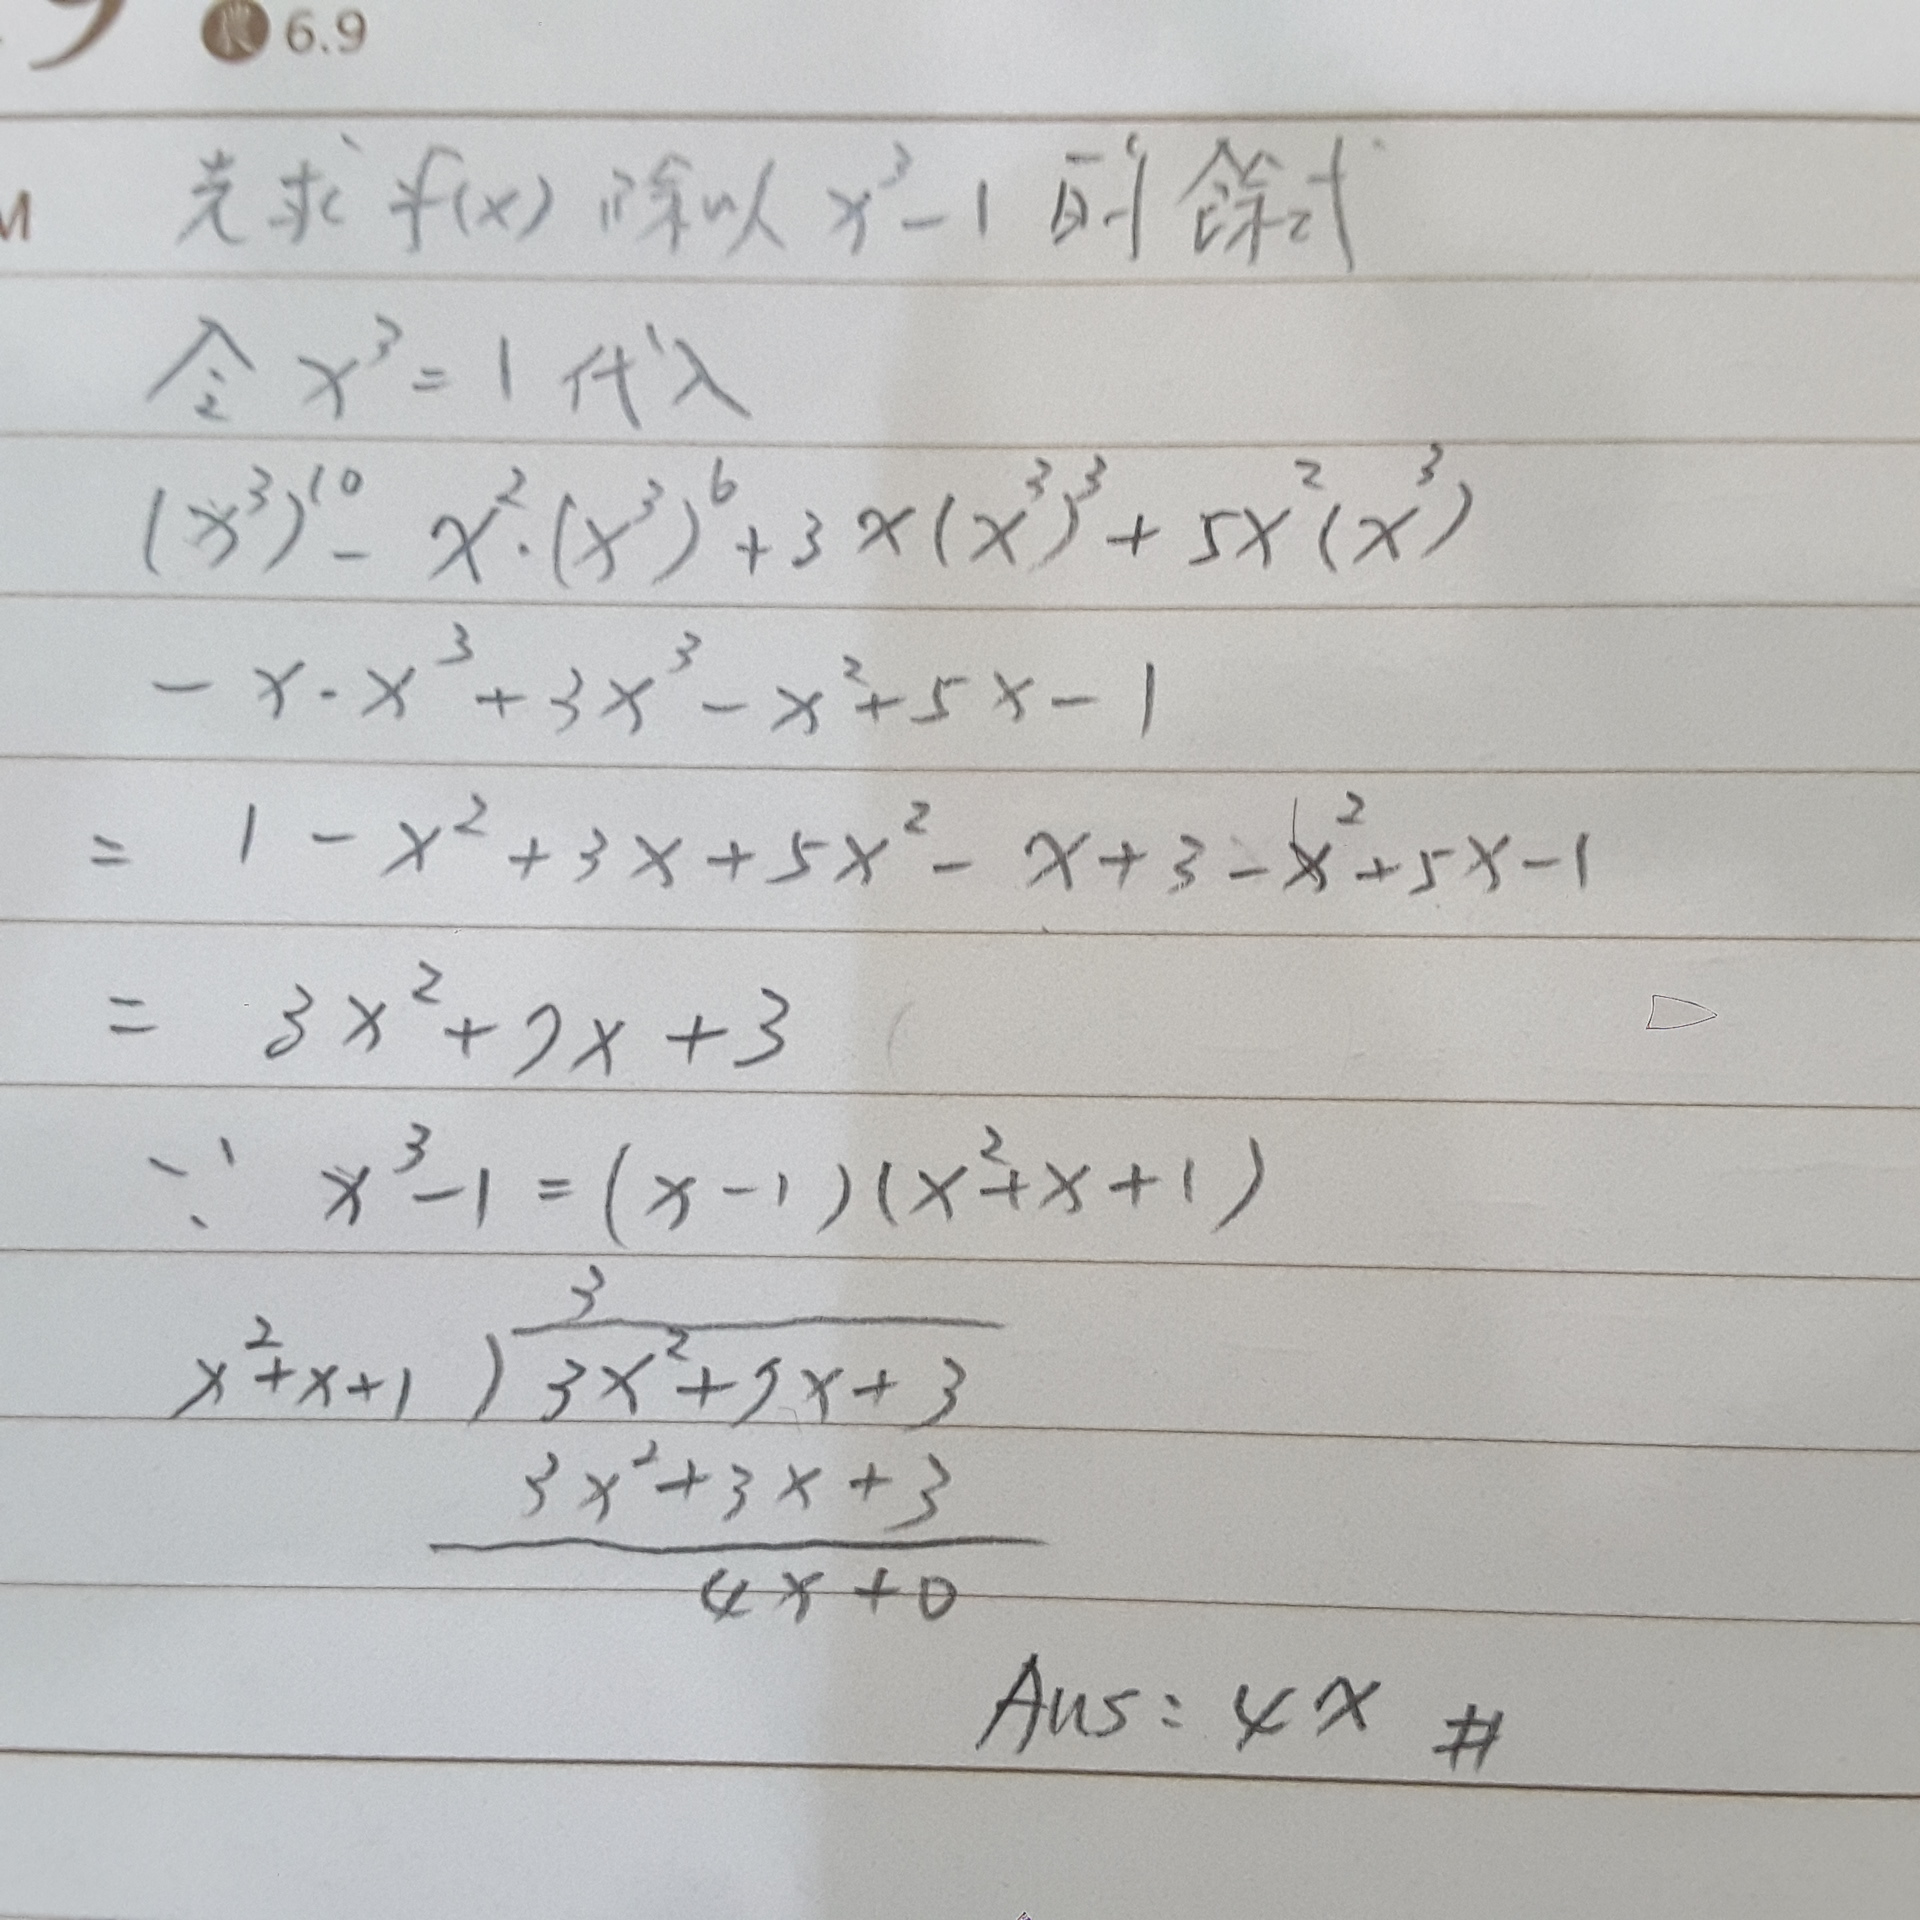 6.9
M
先求 f(x) 除以 x³-1 的餘式
令 x³=1 代入
(x³)¹⁰ - x²·(x³)⁶ + 3x(x³)³ + 5x²(x³)
- x·x³ + 3x³ - x² + 5x - 1
= 1 - x² + 3x + 5x² - x + 3 - x² + 5x - 1
= 3x² + 7x + 3
∵ x³-1 = (x-1)(x²+x+1)
3
x²+x+1 ) 3x²+7x+3
3x²+3x+3
4x+0
Ans: 4x #